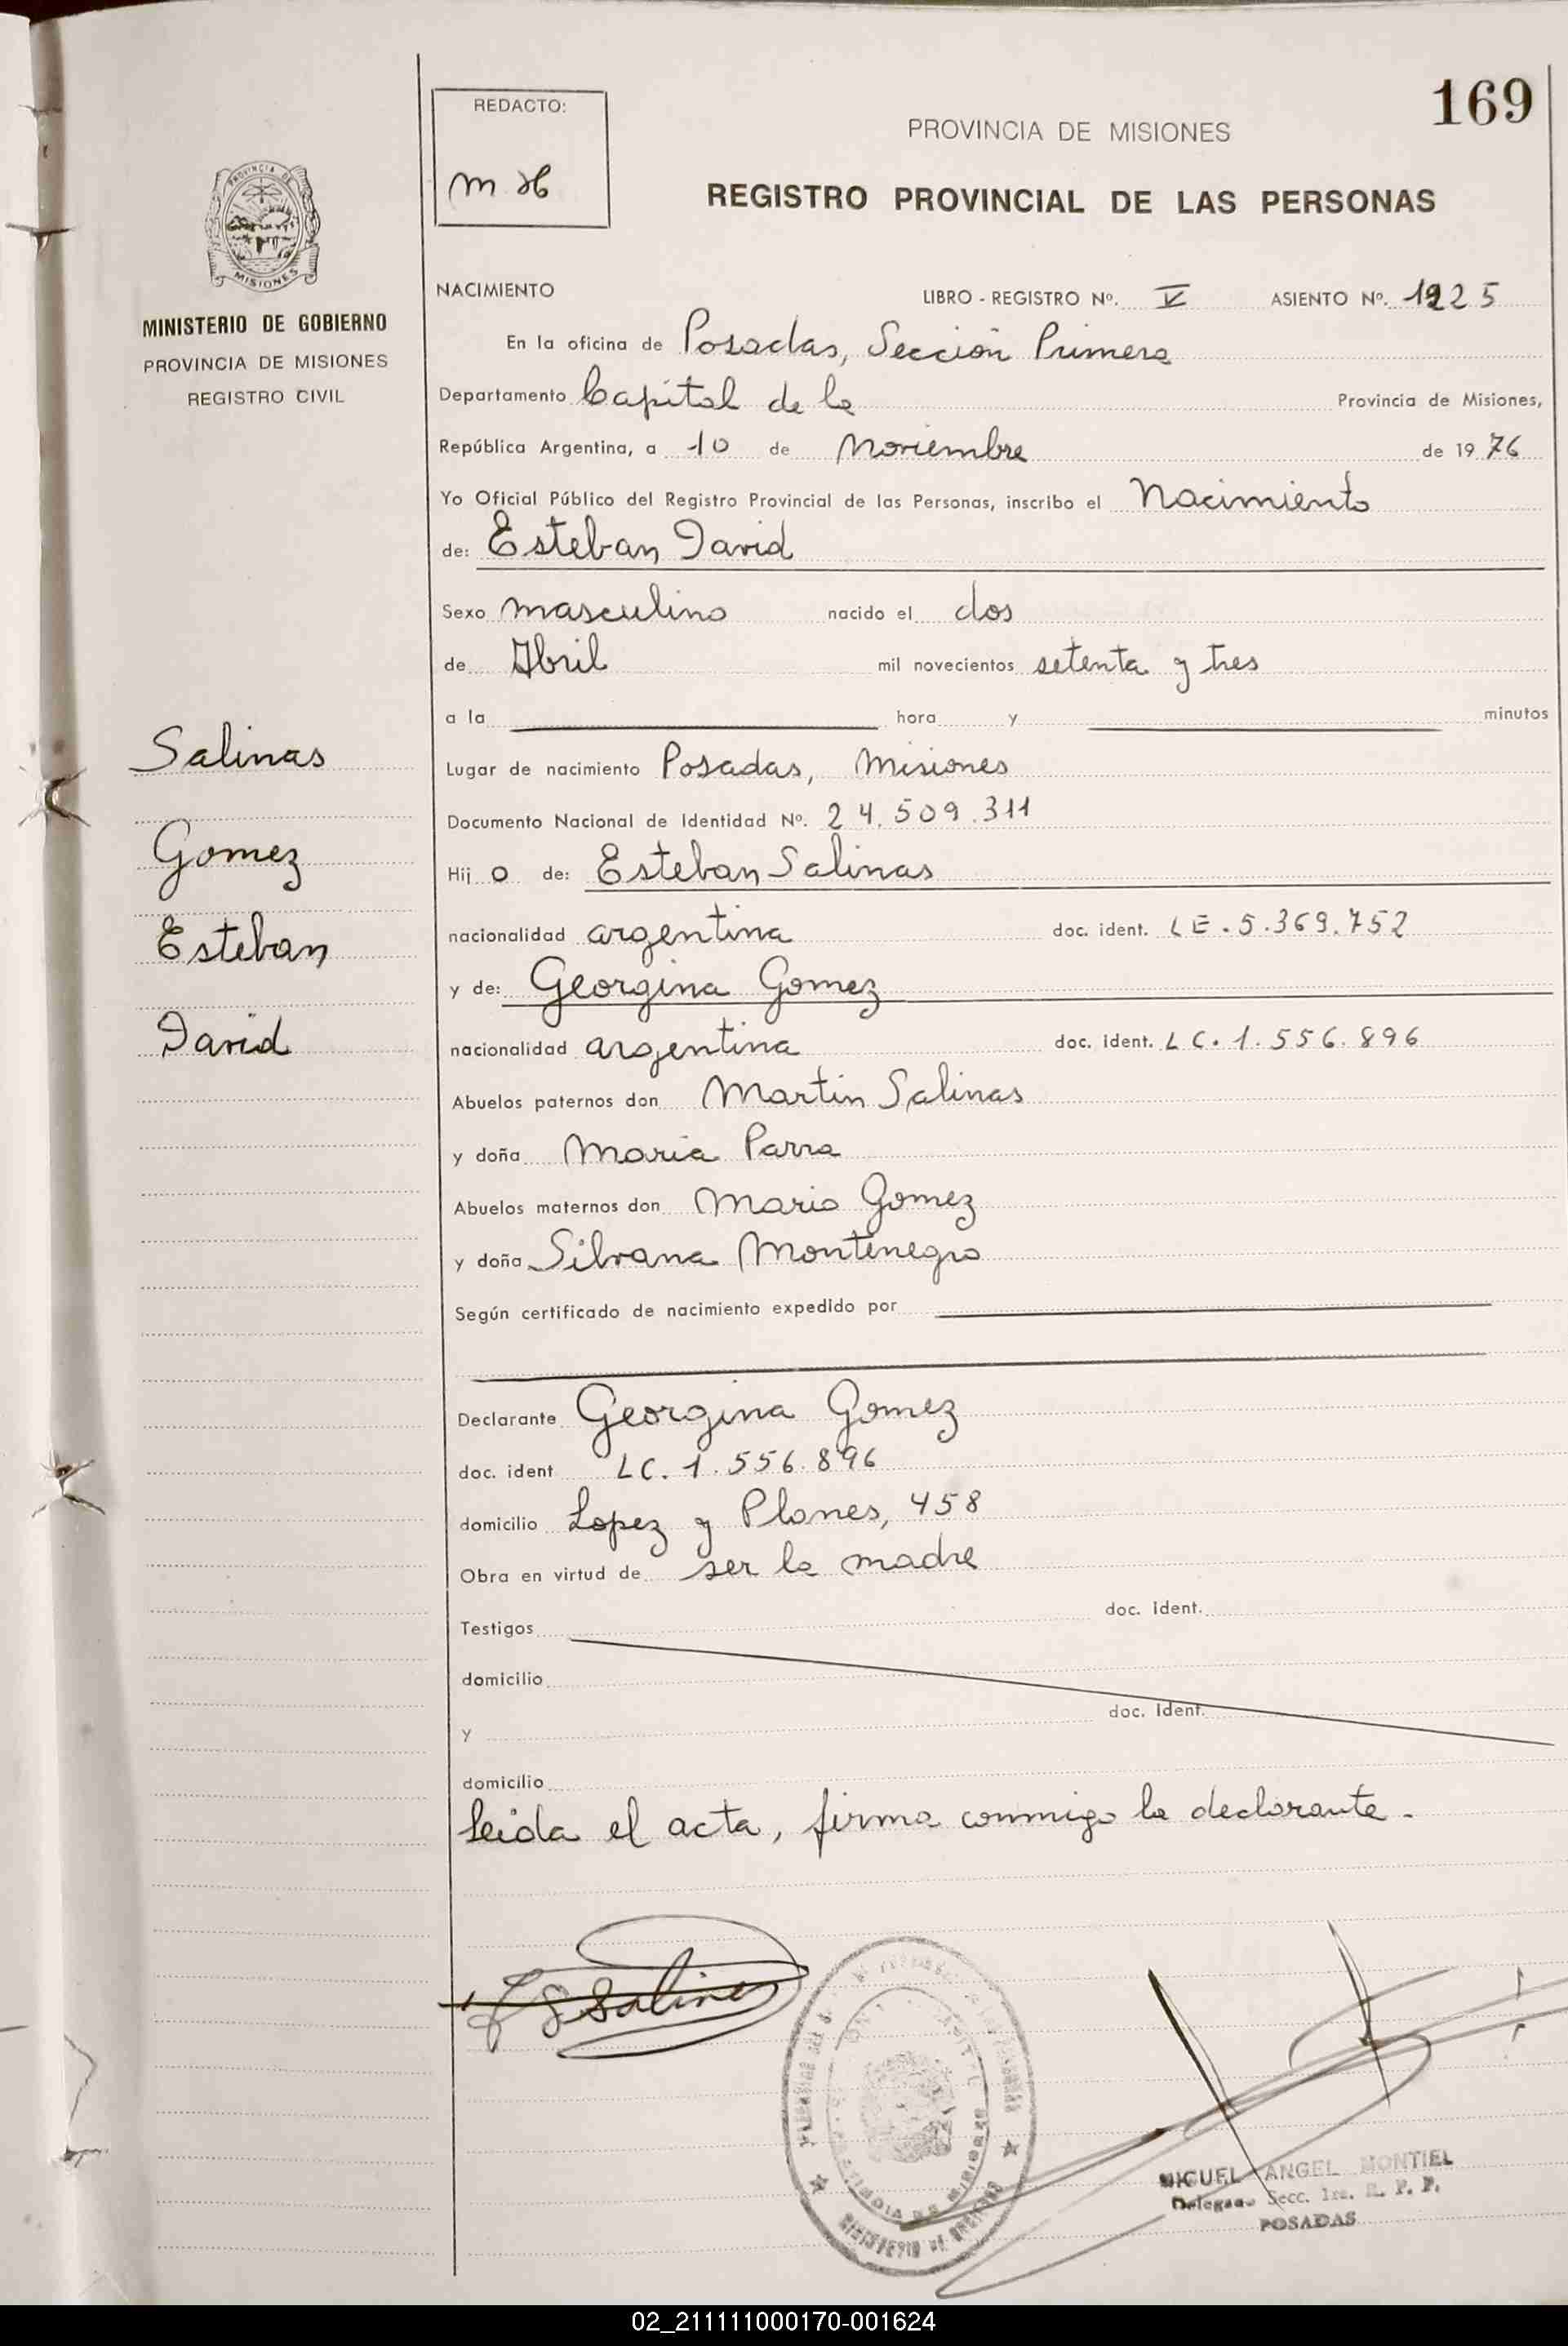 169
REDACTO:
PROVINCIA DE MISIONES
REGISTRO PROVINCIAL DE LAS PERSONAS
PROVINCIA DE
MISIONES
MINISTERIO DE GOBIERNO
PROVINCIA DE MISIONES
REGISTRO CIVIL
NACIMIENTO LIBRO - REGISTRO Nº. V ASIENTO Nº. 1225
En la oficina de Posadas, Sección Primera
Departamento Capital de la Provincia de Misiones,
República Argentina, a 10 de Noviembre de 19 76
Yo Oficial Público del Registro Provincial de las Personas, inscribo el Nacimiento
de: Esteban David
Sexo masculino nacido el dos
de Abril mil novecientos setenta y tres
a la hora y minutos
Salinas
Gomez
Esteban
David
Lugar de nacimiento Posadas, Misiones
Documento Nacional de Identidad Nº. 24.509.311
Hij o de: Esteban Salinas
nacionalidad argentina doc. ident. LE. 5.369.752
y de: Georgina Gomez
nacionalidad argentina doc. ident. LC. 1.556.896
Abuelos paternos don Martin Salinas
y doña Maria Parra
Abuelos maternos don Mario Gomez
y doña Silvana Montenegro
Según certificado de nacimiento expedido por
Declarante Georgina Gomez
doc. ident LC. 1.556.896
domicilio Lopez y Planes, 458
Obra en virtud de ser la madre
Testigos doc. ident.
domicilio
y doc. Ident.
domicilio
leida el acta, firma conmigo la declarante.
Salinas
MIGUEL ANGEL MONTIEL
Delegado Secc. 1ra. R. P. P.
POSADAS
02_211111000170-001624